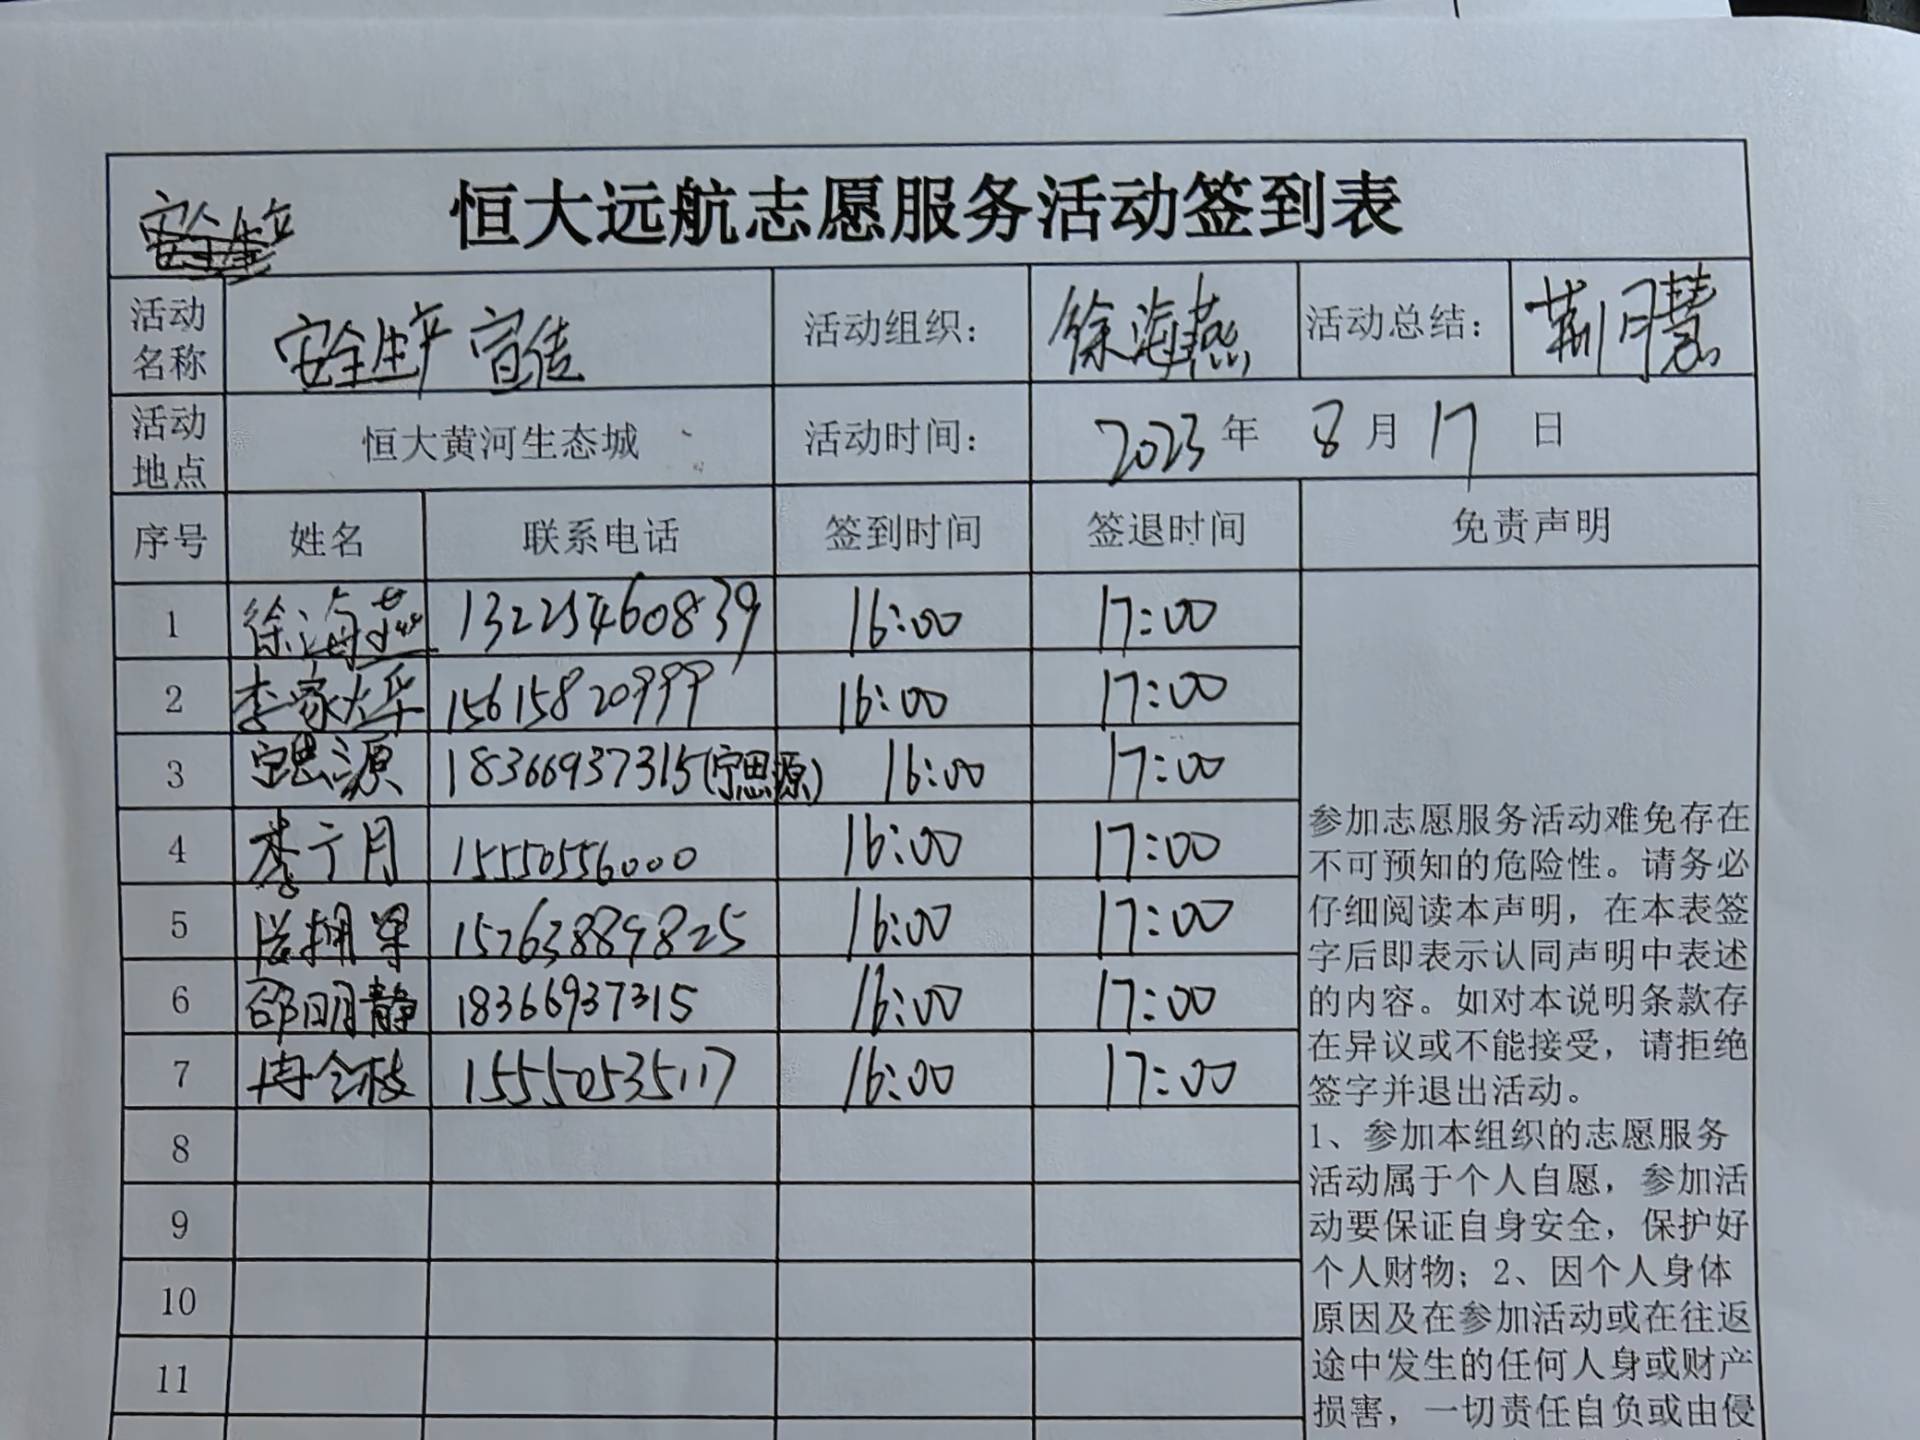 恒大远航志愿服务活动签到表
活动名称 安全生产宣传 活动组织： 徐海燕 活动总结： 荆月慧
活动地点 恒大黄河生态城 活动时间： 2023年 8月17日
序号 姓名 联系电话 签到时间 签退时间 免责声明
1 徐海燕 13225460839 16:00 17:00
2 李家烨 15615820999 16:00 17:00
3 宁思源 18366937315(宁思源) 16:00 17:00
4 李宁月 15550556000 16:00 17:00
5 15763889825 16:00 17:00
6 邵明静 18366937315 16:00 17:00
7 冉令枝 15550535117 16:00 17:00
8
9
10
11
参加志愿服务活动难免存在
不可预知的危险性。请务必
仔细阅读本声明，在本表签
字后即表示认同声明中表述
的内容。如对本说明条款存
在异议或不能接受，请拒绝
签字并退出活动。
1、参加本组织的志愿服务
活动属于个人自愿，参加活
动要保证自身安全，保护好
个人财物；2、因个人身体
原因及在参加活动或在往返
途中发生的任何人身或财产
损害，一切责任自负或由侵